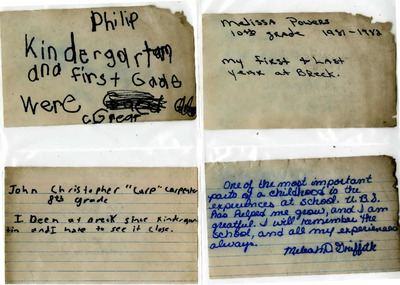 Philip
Kindergarten
and First Gade
were
cGreat
Melissa Powers
10th grade 1981-1982
my First & Last
year at Breck.
John Christopher "Carp" Carpenter
8th grade
I Been at Breck since Kindergar
tin and I hate to see it close.
One of the most important
parts of a childhood is the
experiences at school. U.B.S.
has helped me grow, and I am
greatful. I will remember the
school, and all my experiences
always.